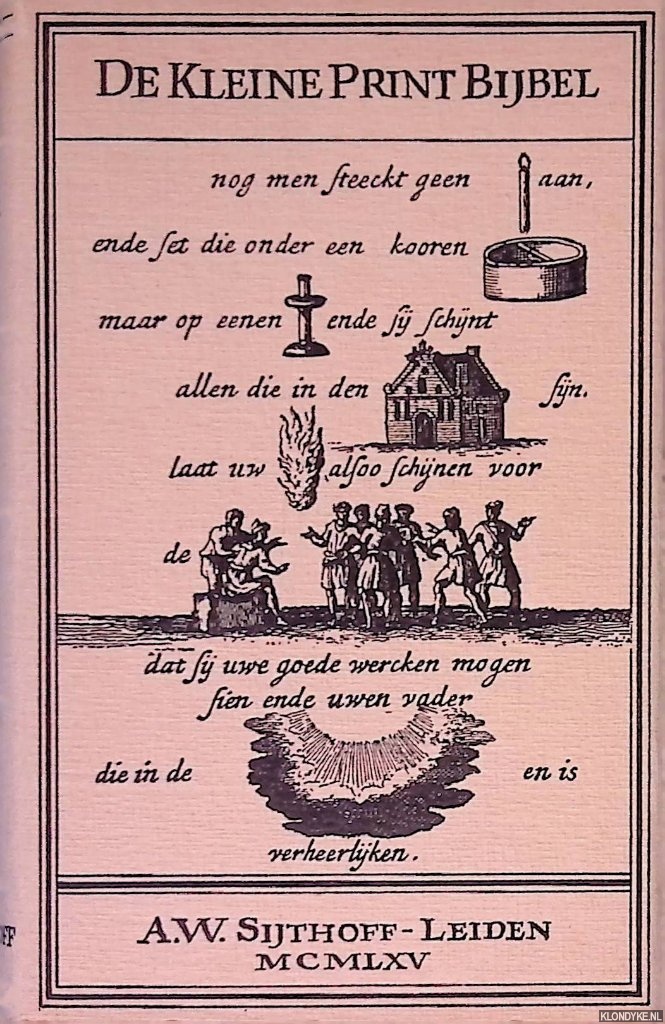 DE KLEINE PRINT BIJBEL
nog men ſteeckt geen aan,
ende ſet die onder een kooren
maar op eenen ende ſy ſchynt
allen die in den ſijn.
laat uw alſoo ſchijnen voor
de
dat ſij uwe goede wercken mogen
ſien ende uwen vader
die in de en is
verheerlijken.
A.W. SIJTHOFF-LEIDEN
MCMLXV
KLONDYKE.NL